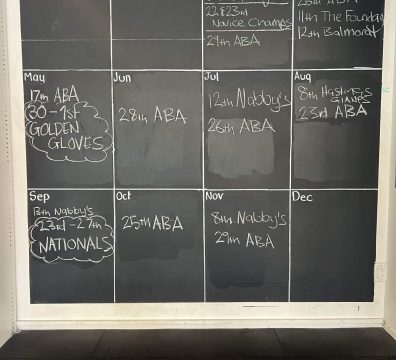 22 & 23rd
Novice Champs
29th ABA
11th The Foundry
12th Balmoral
May
17th ABA
30 - 1st
GOLDEN
GLOVES
Jun
28th ABA
Jul
12th Nabby's
26th ABA
Aug
8th Hastings
GIANTS
23rd ABA
Sep
13th Nabby's
23rd - 27th
NATIONALS
Oct
25th ABA
Nov
8th Nabby's
29th ABA
Dec